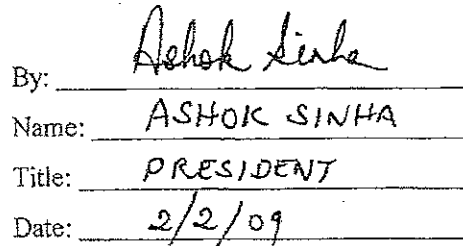 By: Ashok Sinha
Name: ASHOK SINHA
Title: PRESIDENT
Date: 2/2/09